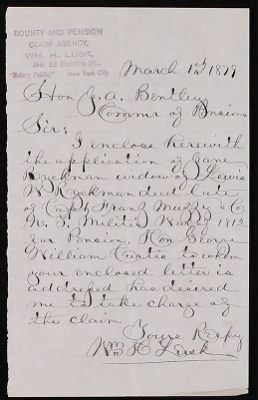 BOUNTY AND PENSION
CLAIM AGENCY,
WM. H. LUSK,
"Notary Public," New York City.
March 12th 1879
Hon J. A. Bentley
Commr of Pensions
Sir:
I enclose herewith
the application of Jane
Ryckman widow of Lewis
W Ryckman decd late
of Capt Frank Muzzy's Co
N.Y. Militia War of 1812
for Pension, Hon George
William Curtis to whom
your enclosed letter is
addressed has desired
me to take charge of
the claim
Yours Respy
Wm H Lusk